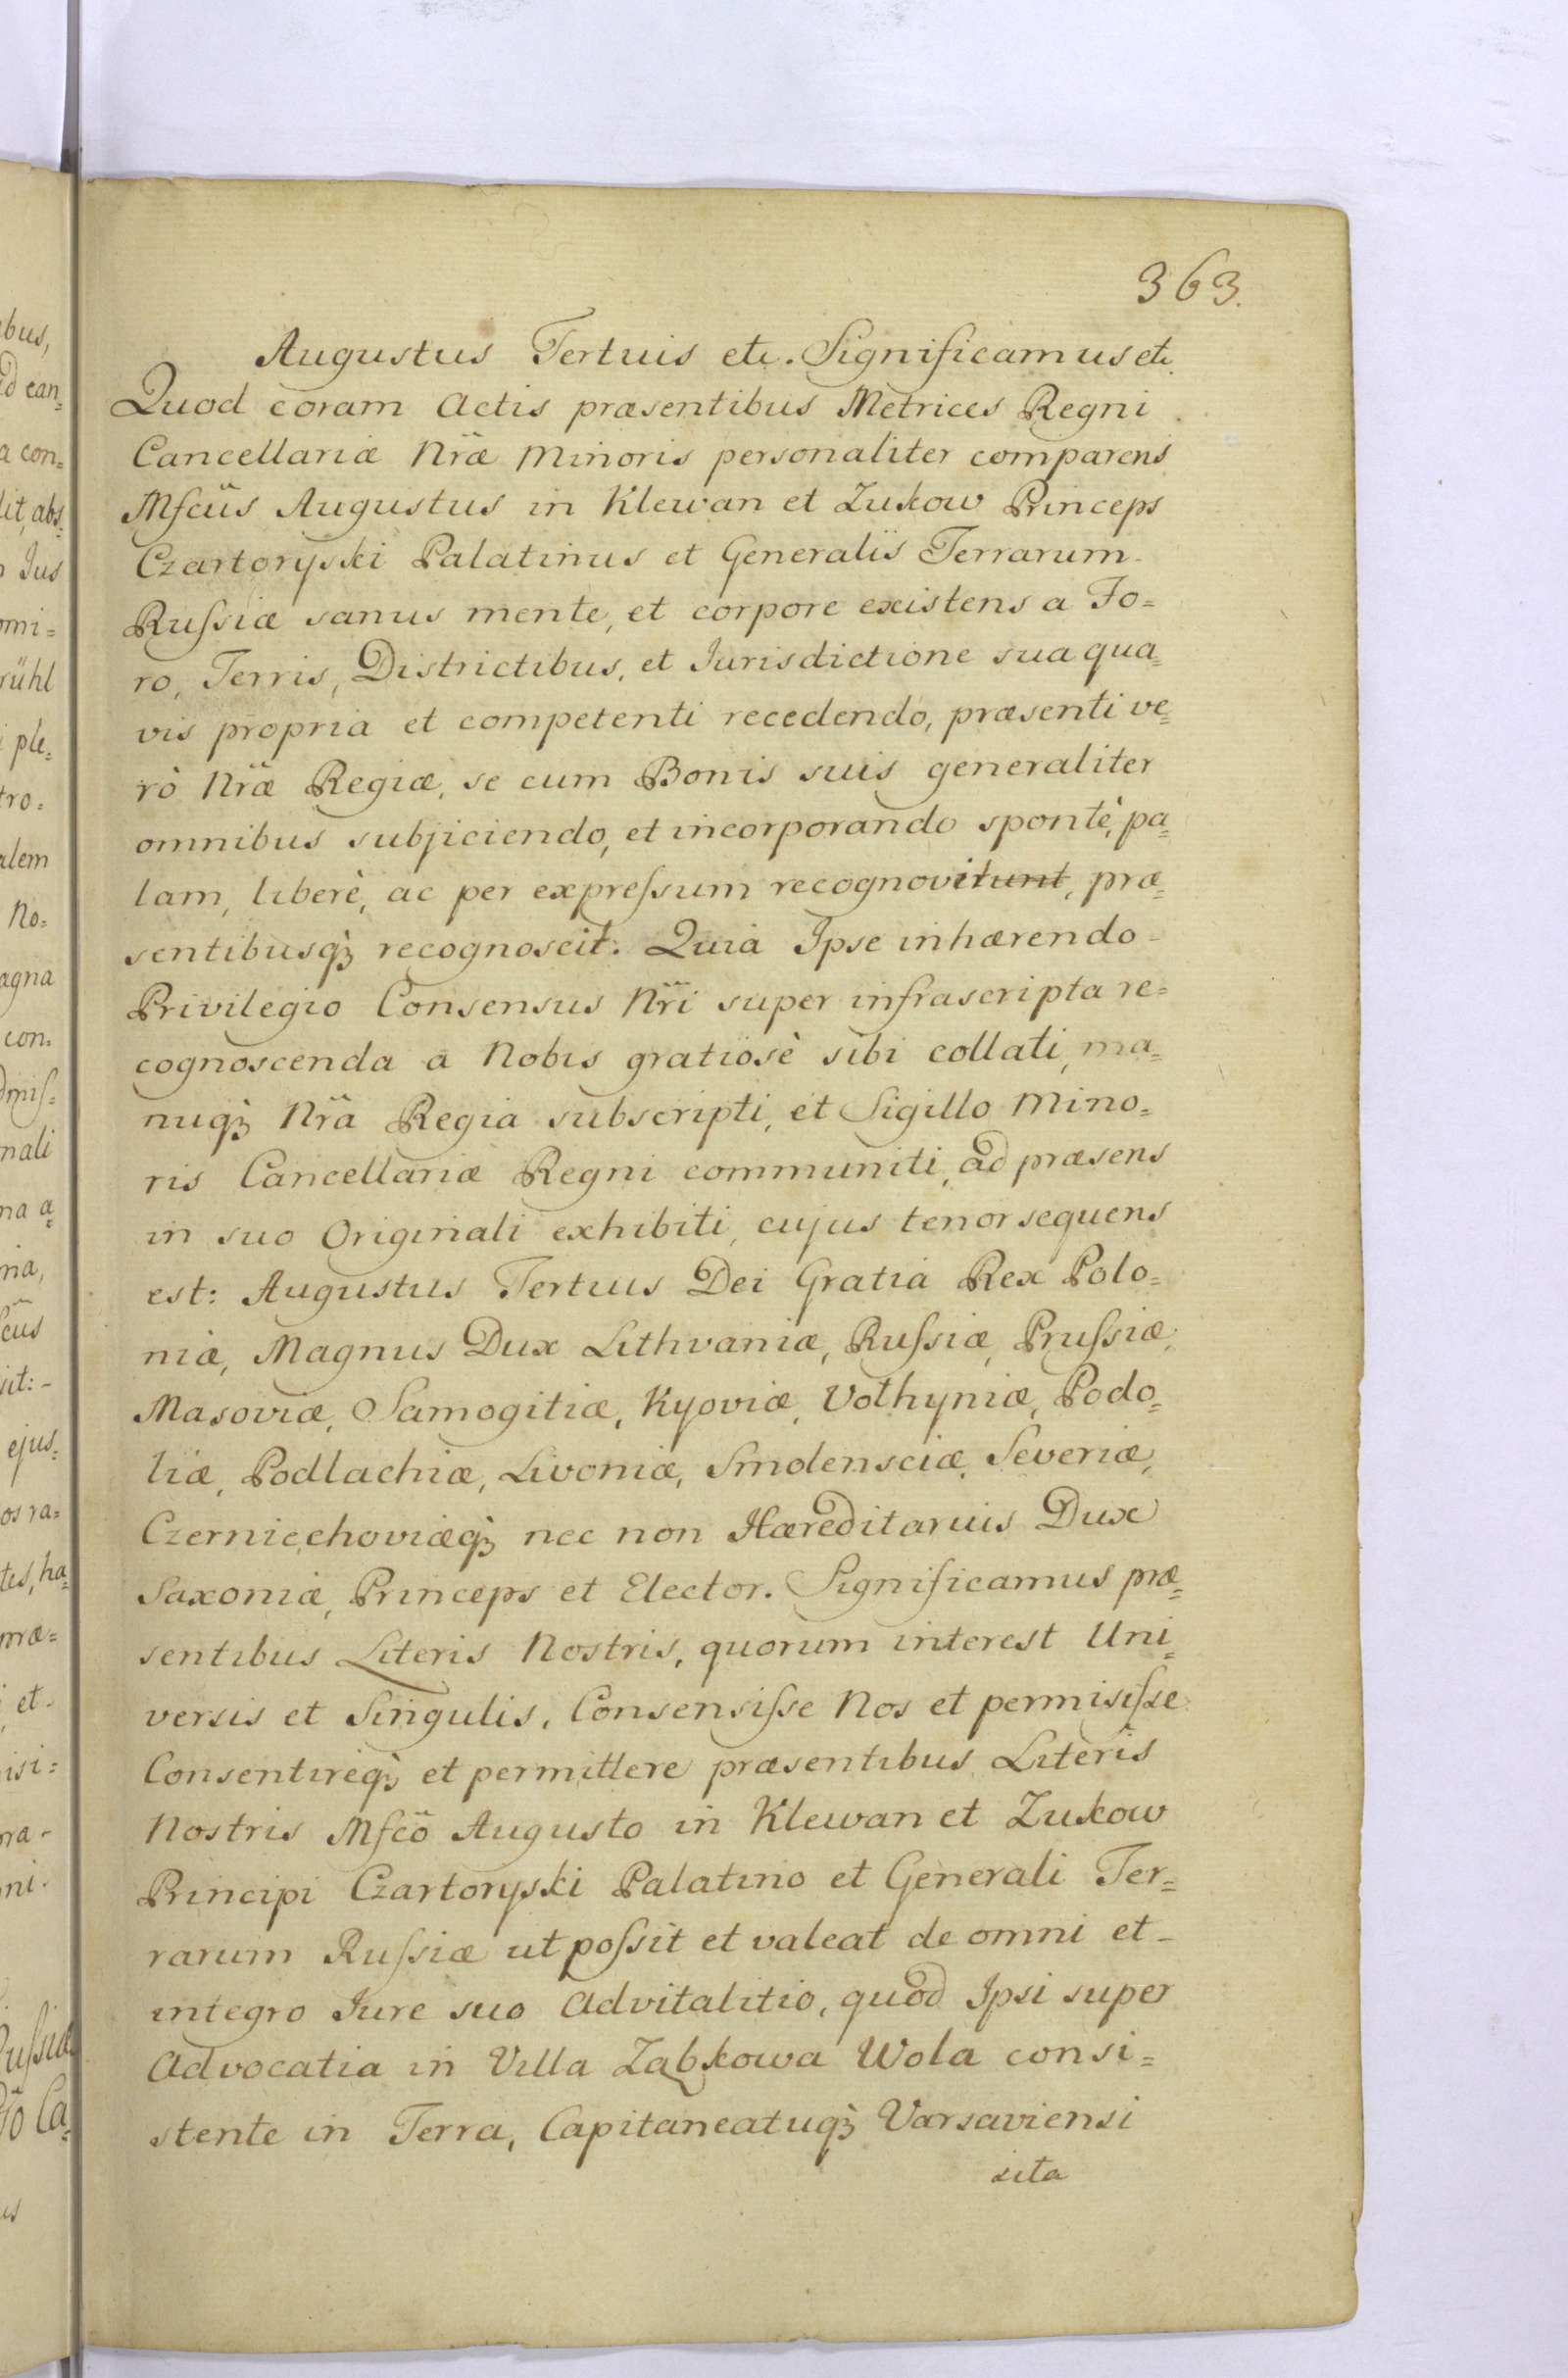 363.
Augustus Tertuis etc. Significamus etc
Quod coram Actis præsentibus Metrices Regni
Cancellariæ Nr̃æ Minoris personaliter comparens
Mfcũs Augustus in Klewan et Zukow Princeps
Czartoryski Palatinus et Generaliis Terrarum
Rufsiæ sanus mente, et corpore existens a Fo=
ro, Terris, Districtibus, et Iurisdictione sua qua=
vis propria et competenti recedendo, præsenti ve=
rò Nr̃æ Regiæ, se cum Bonis suis generaliter
omnibus subjiciendo, et incorporando spontè, pa=
lam, liberè, ac per exprefsum recognovitunt, præ=
sentibusq; recognoscit. Quia Ipse inhærendo
Privilegio Consensus Nr̃i super infrascripta re=
cognoscenda a Nobis gratiosè sibi collati, ma=
nuq; Nr̃a Regia subscripti, et Sigillo Mino=
ris Cancellariæ Regni communiti, ad præsens
in suo Originali exhibiti, cujus tenor sequens
est: Augustus Tertius Dei Gratia Rex Polo=
niæ, Magnus Dux Lithvaniæ, Rufsiæ, Prufsiæ,
Masoviæ, Samogitiæ, Kyoviæ, Volhyniæ, Podo=
liæ, Podlachiæ, Livoniæ, Smolensciæ, Severiæ,
Czerniechoviæq; nec non Hæreditarius Dux
Saxoniæ, Princeps et Elector. Significamus præ=
sentibus Literis Nostris, quorum interest Uni=
versis et Singulis, Consensifse Nos et permisifse
Consentireq; et permittere præsentibus Literis
Nostris Mfcõ Augusto in Klewan et Zukow
Principi Czartoryski Palatino et Generali Ter=
rarum Rufsiæ ut pofsit et valeat de omni et
integro Iure suo Advitalitio, quod Ipsi super
Advocatia in Villa Ząbkowa Wola consi=
stente in Terra, Capitaneatuq; Varsaviensi
sita